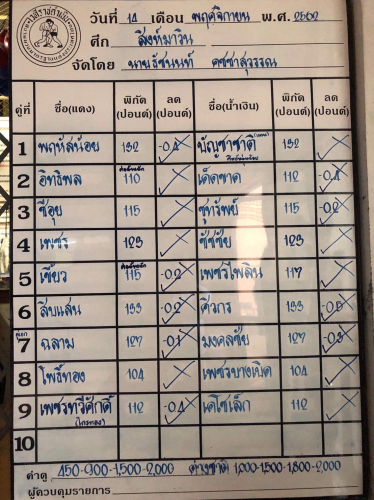 วันที่ 14 เดือน พฤศจิกายน พ.ศ. 2562
ศึก สิงห์มาวิน
จัดโดย นายธัชนนท์ คชชาสุวรรณ
คู่ที่ ชื่อ(แดง) พิกัด (ปอนด์) ลด (ปอนด์) ชื่อ(น้ำเงิน) พิกัด (ปอนด์) ลด (ปอนด์)
1 พฤหัสน้อย 132 -0.4 บัญชาชาติ 132
2 อิทธิพล 110 เด็ดขาด 112 -0.4
3 ซีอุย 115 ชูทรัพย์ 115 -0.2
4 เพชร 123 ชัชชัย 123
5 เขียว 115 -0.2 เพชรไพลิน 117
6 สิบแสน 133 -0.2 ศิวกร 133 -0.5
คู่เอก
7 ฉลาม 127 -0.1 มงคลชัย 127 -0.3
8 โพธิ์ทอง 104 เพชรบางเบิด 104
9 เพชรทวีศักดิ์ 112 -0.4 แคโซเล็ก 112
10
ค่าดู 450-900-1,500-2,000 ต่างชาติ 1,000-1,500-1,800-2,000
ผู้ควบคุมรายการ